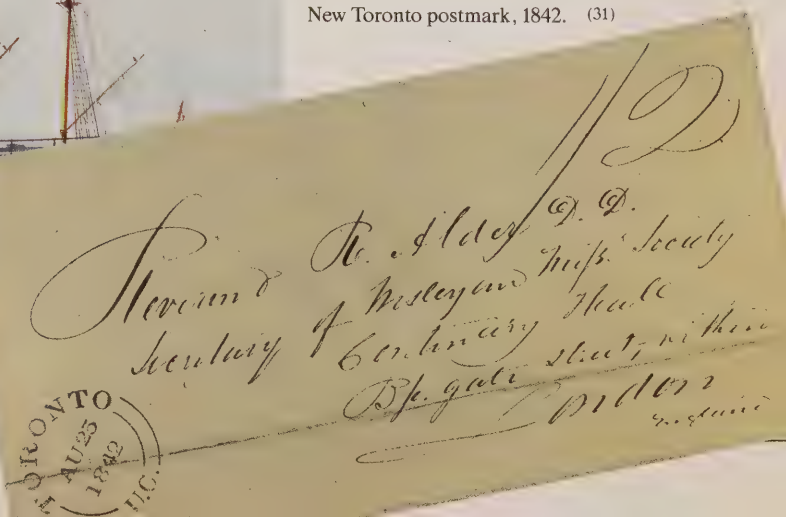 New Toronto postmark, 1842. (31)
1/2
Reverend R. Alder D.D.
Secretary of Wesleyan Miss. Society
Centenary Hall
Bp. gate Street, within
London
England
TORONTO
AU 25
1842
U.C.